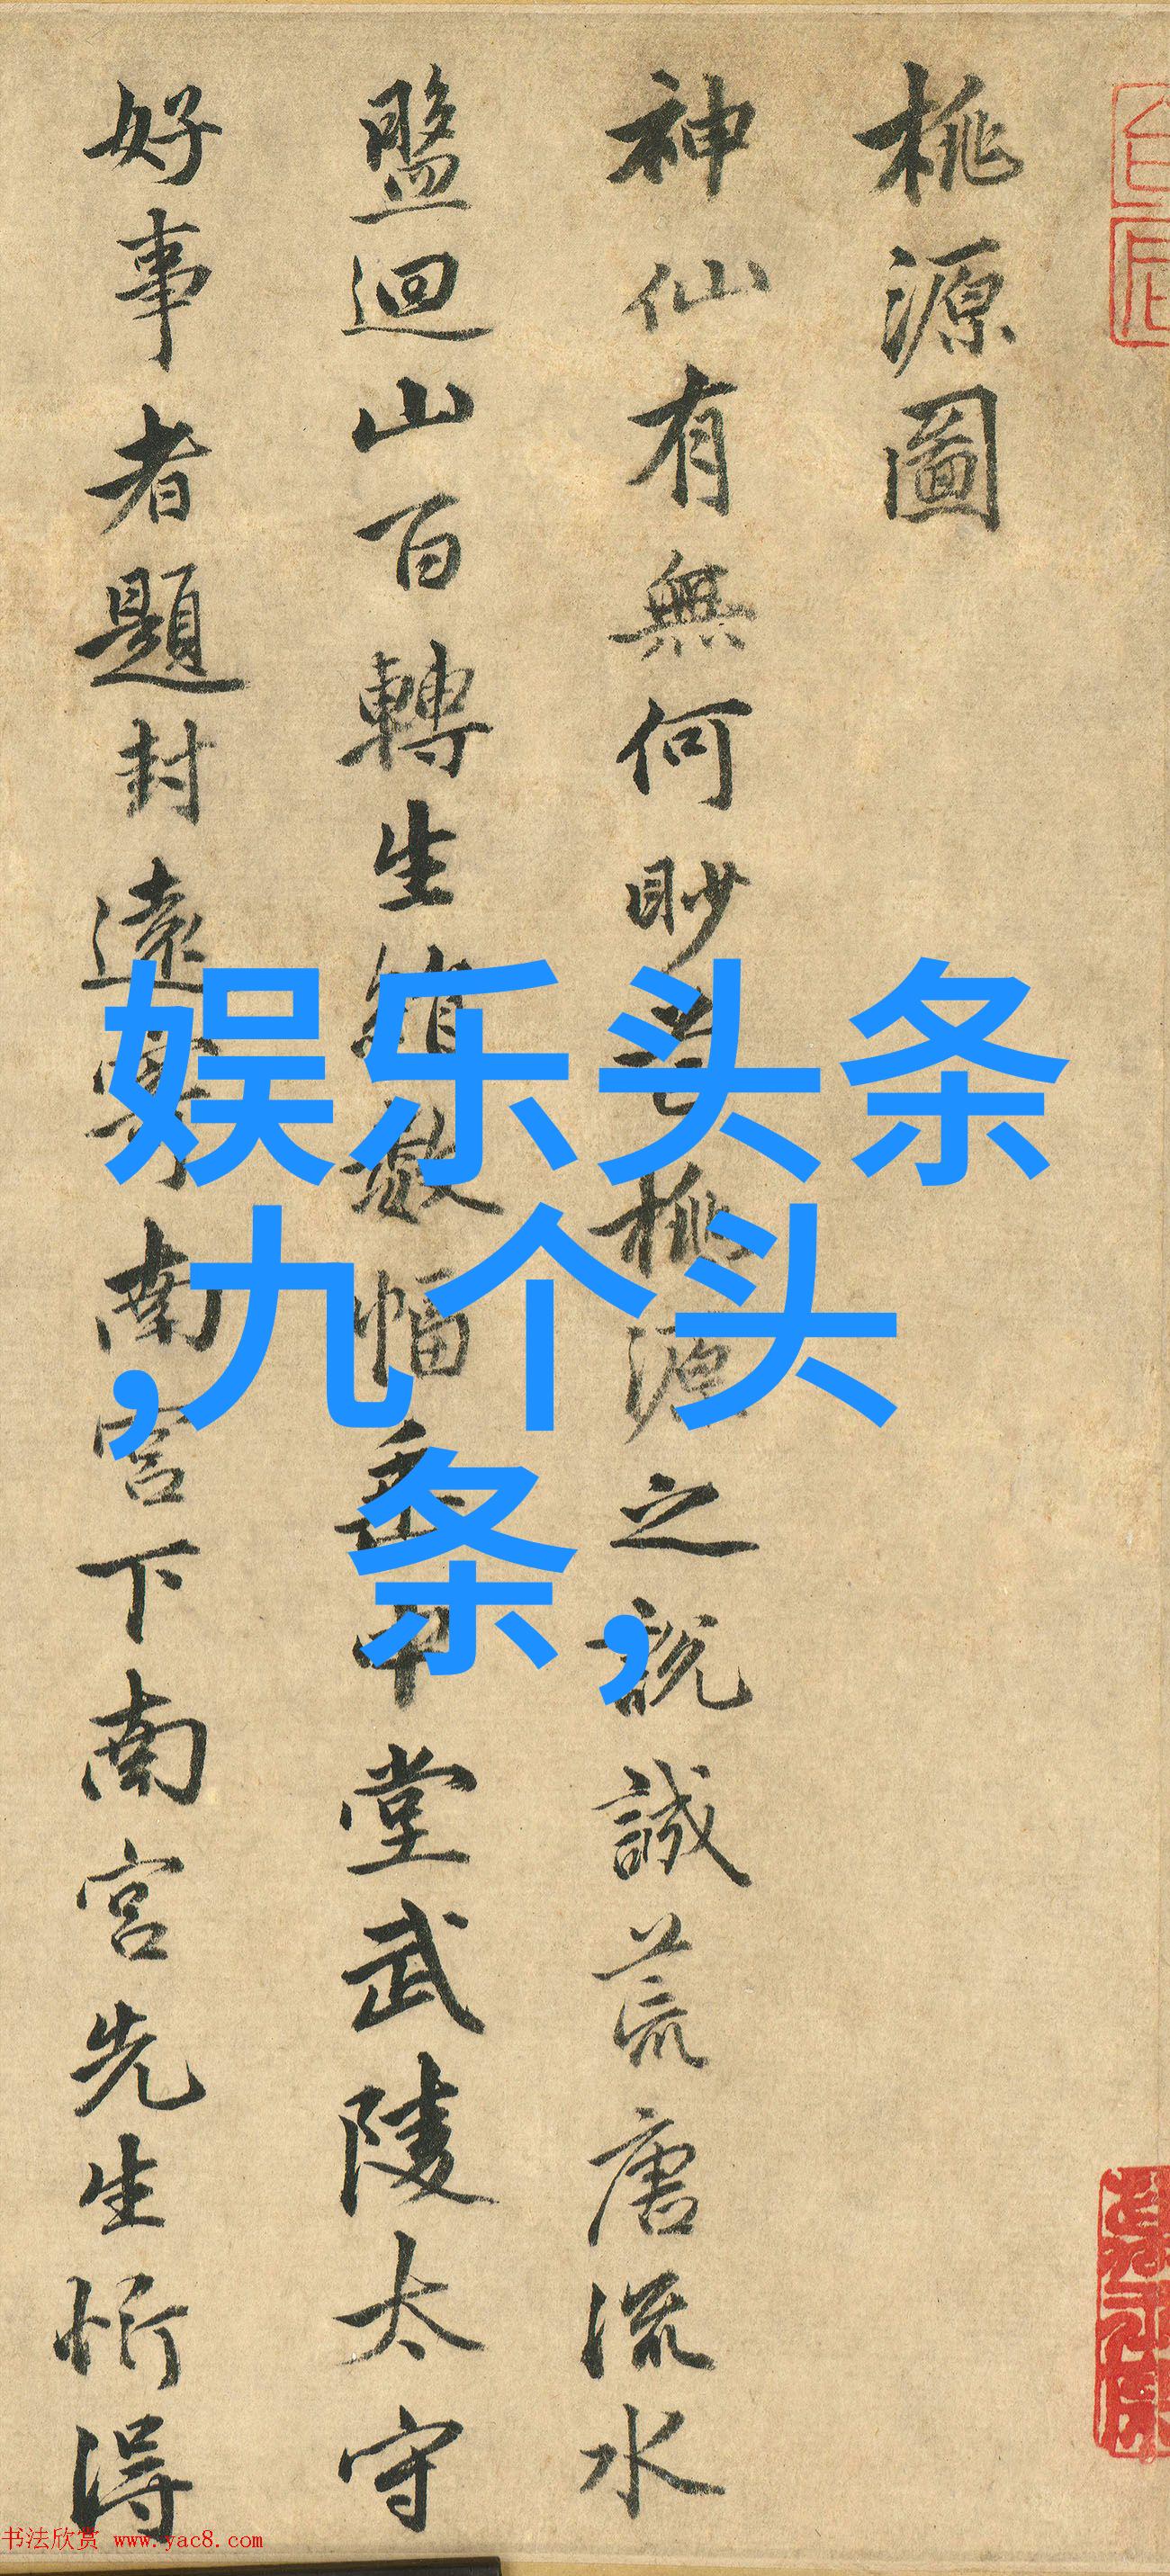 桃源圖
神仙有無何眇芒桃源之說誠荒唐流水
盤迴山百轉生綃數幅垂中堂武陵太守
好事者題封遠寄南宮下南宮先生忻得
娱乐头条
,九个头
条,
书法欣赏 www.yac8.com